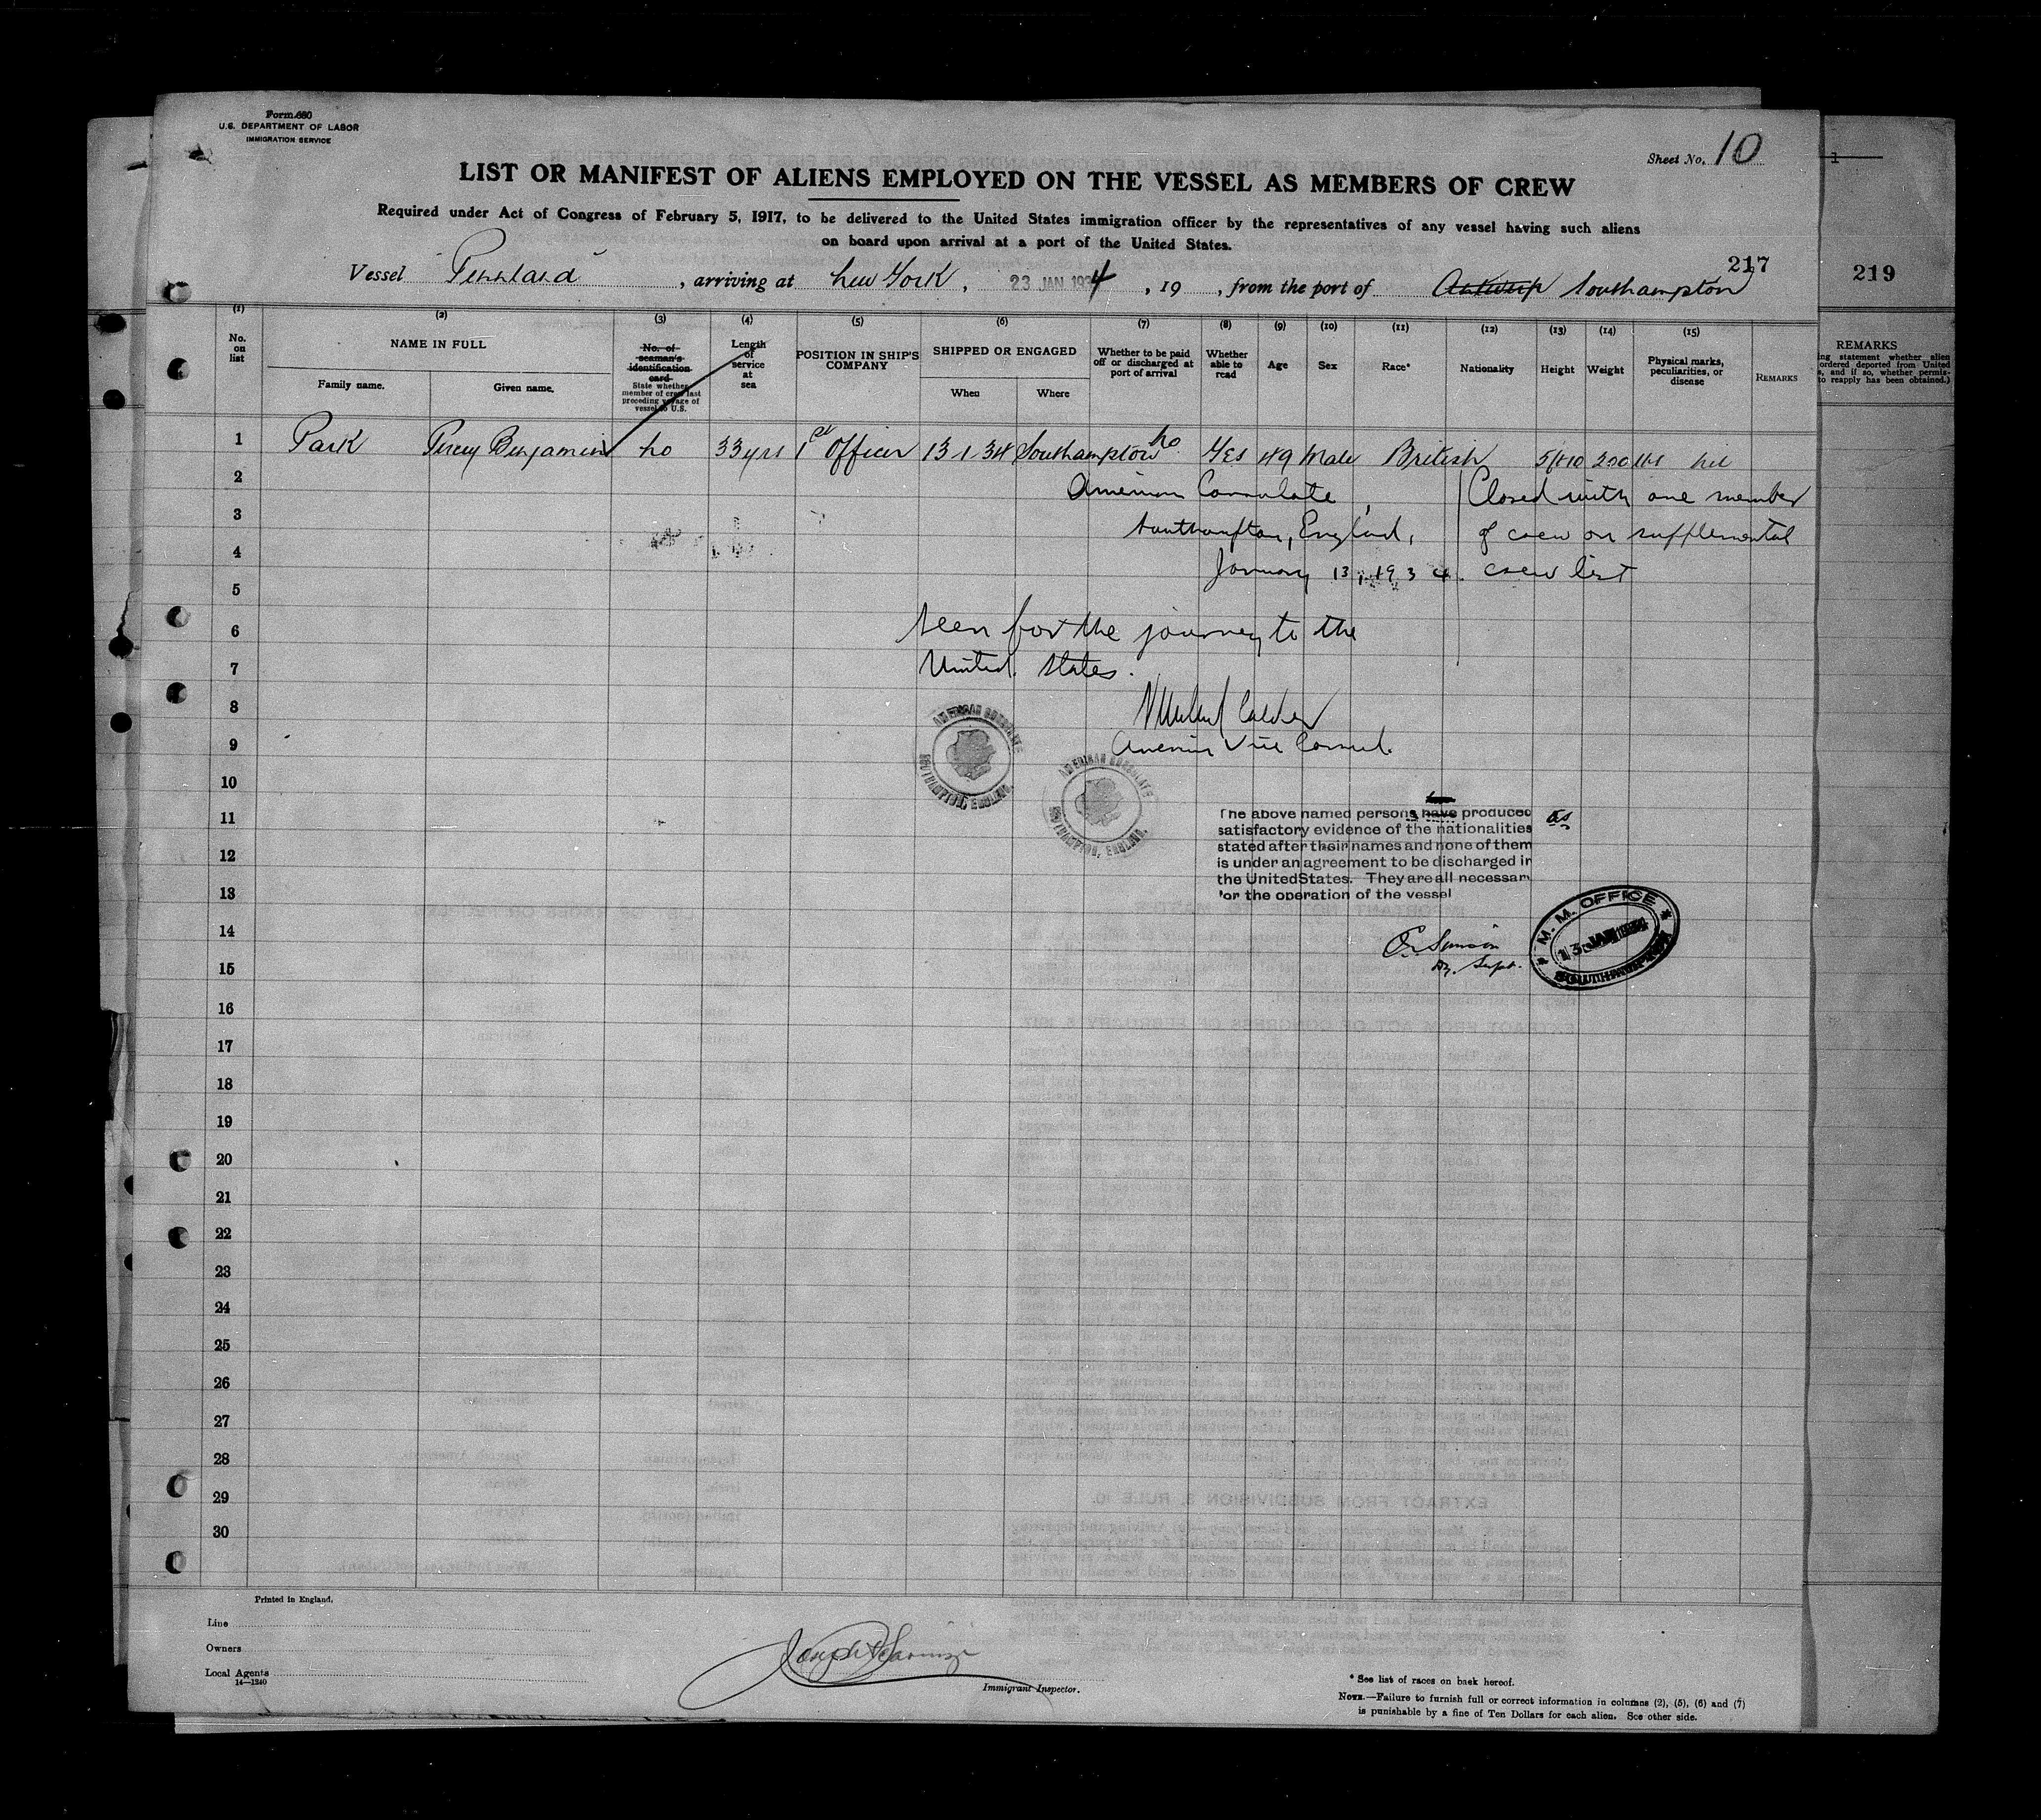 Form 680
U.S. DEPARTMENT OF LABOR
IMMIGRATION SERVICE
Sheet No. 10
1
LIST OR MANIFEST OF ALIENS EMPLOYED ON THE VESSEL AS MEMBERS OF CREW
Required under Act of Congress of February 5, 1917, to be delivered to the United States immigration officer by the representatives of any vessel having such aliens
on board upon arrival at a port of the United States.
217
219
Vessel "Pennland", arriving at New York, 23 JAN 1934, 19 , from the port of Antwerp Southampton
(1) (2) (3) (4) (5) (6) (7) (8) (9) (10) (11) (12) (13) (14) (15)
No. on list
NAME IN FULL
Family name. Given name.
No. of seaman's identification card
State whether member of crew last preceding voyage of vessel to U.S.
Length of service at sea
POSITION IN SHIP'S COMPANY
SHIPPED OR ENGAGED
When Where
Whether to be paid off or discharged at port of arrival
Whether able to read
Age
Sex
Race*
Nationality
Height
Weight
Physical marks, peculiarities, or disease
REMARKS
REMARKS
ing statement whether alien
ordered deported from United
s, and if so, whether permis-
to reapply has been obtained.)
1 Park Percy Benjamin No 33 yrs 1st Officer 13-1-34 Southampton No Yes 49 Male British 5ft10 200 lbs Nil
2 American Consulate Closed with one member
3 Southampton, England, of crew on supplemental
4 January 13, 1934. crew list
5
6 Seen for the journey to the
7 United States.
8 Calder
9 American Vice Consul.
AMERICAN CONSULATE
SOUTHAMPTON, ENGLAND.
AMERICAN CONSULATE
SOUTHAMPTON, ENGLAND.
10
11 The above named persons have produced
satisfactory evidence of the nationalities
12 stated after their names and none of them
is under an agreement to be discharged in
the United States. They are all necessary
13 for the operation of the vessel
14
15 Dy. Supt.
M. M. OFFICE
13 JAN 1934
SOUTHAMPTON
16
17
18
19
20
21
22
23
24
25
26
27
28
29
30
Printed in England.
Line
Owners
Local Agents
14—1240
Immigrant Inspector.
* See list of races on back hereof.
NOTE.—Failure to furnish full or correct information in columns (2), (5), (6) and (7)
is punishable by a fine of Ten Dollars for each alien. See other side.